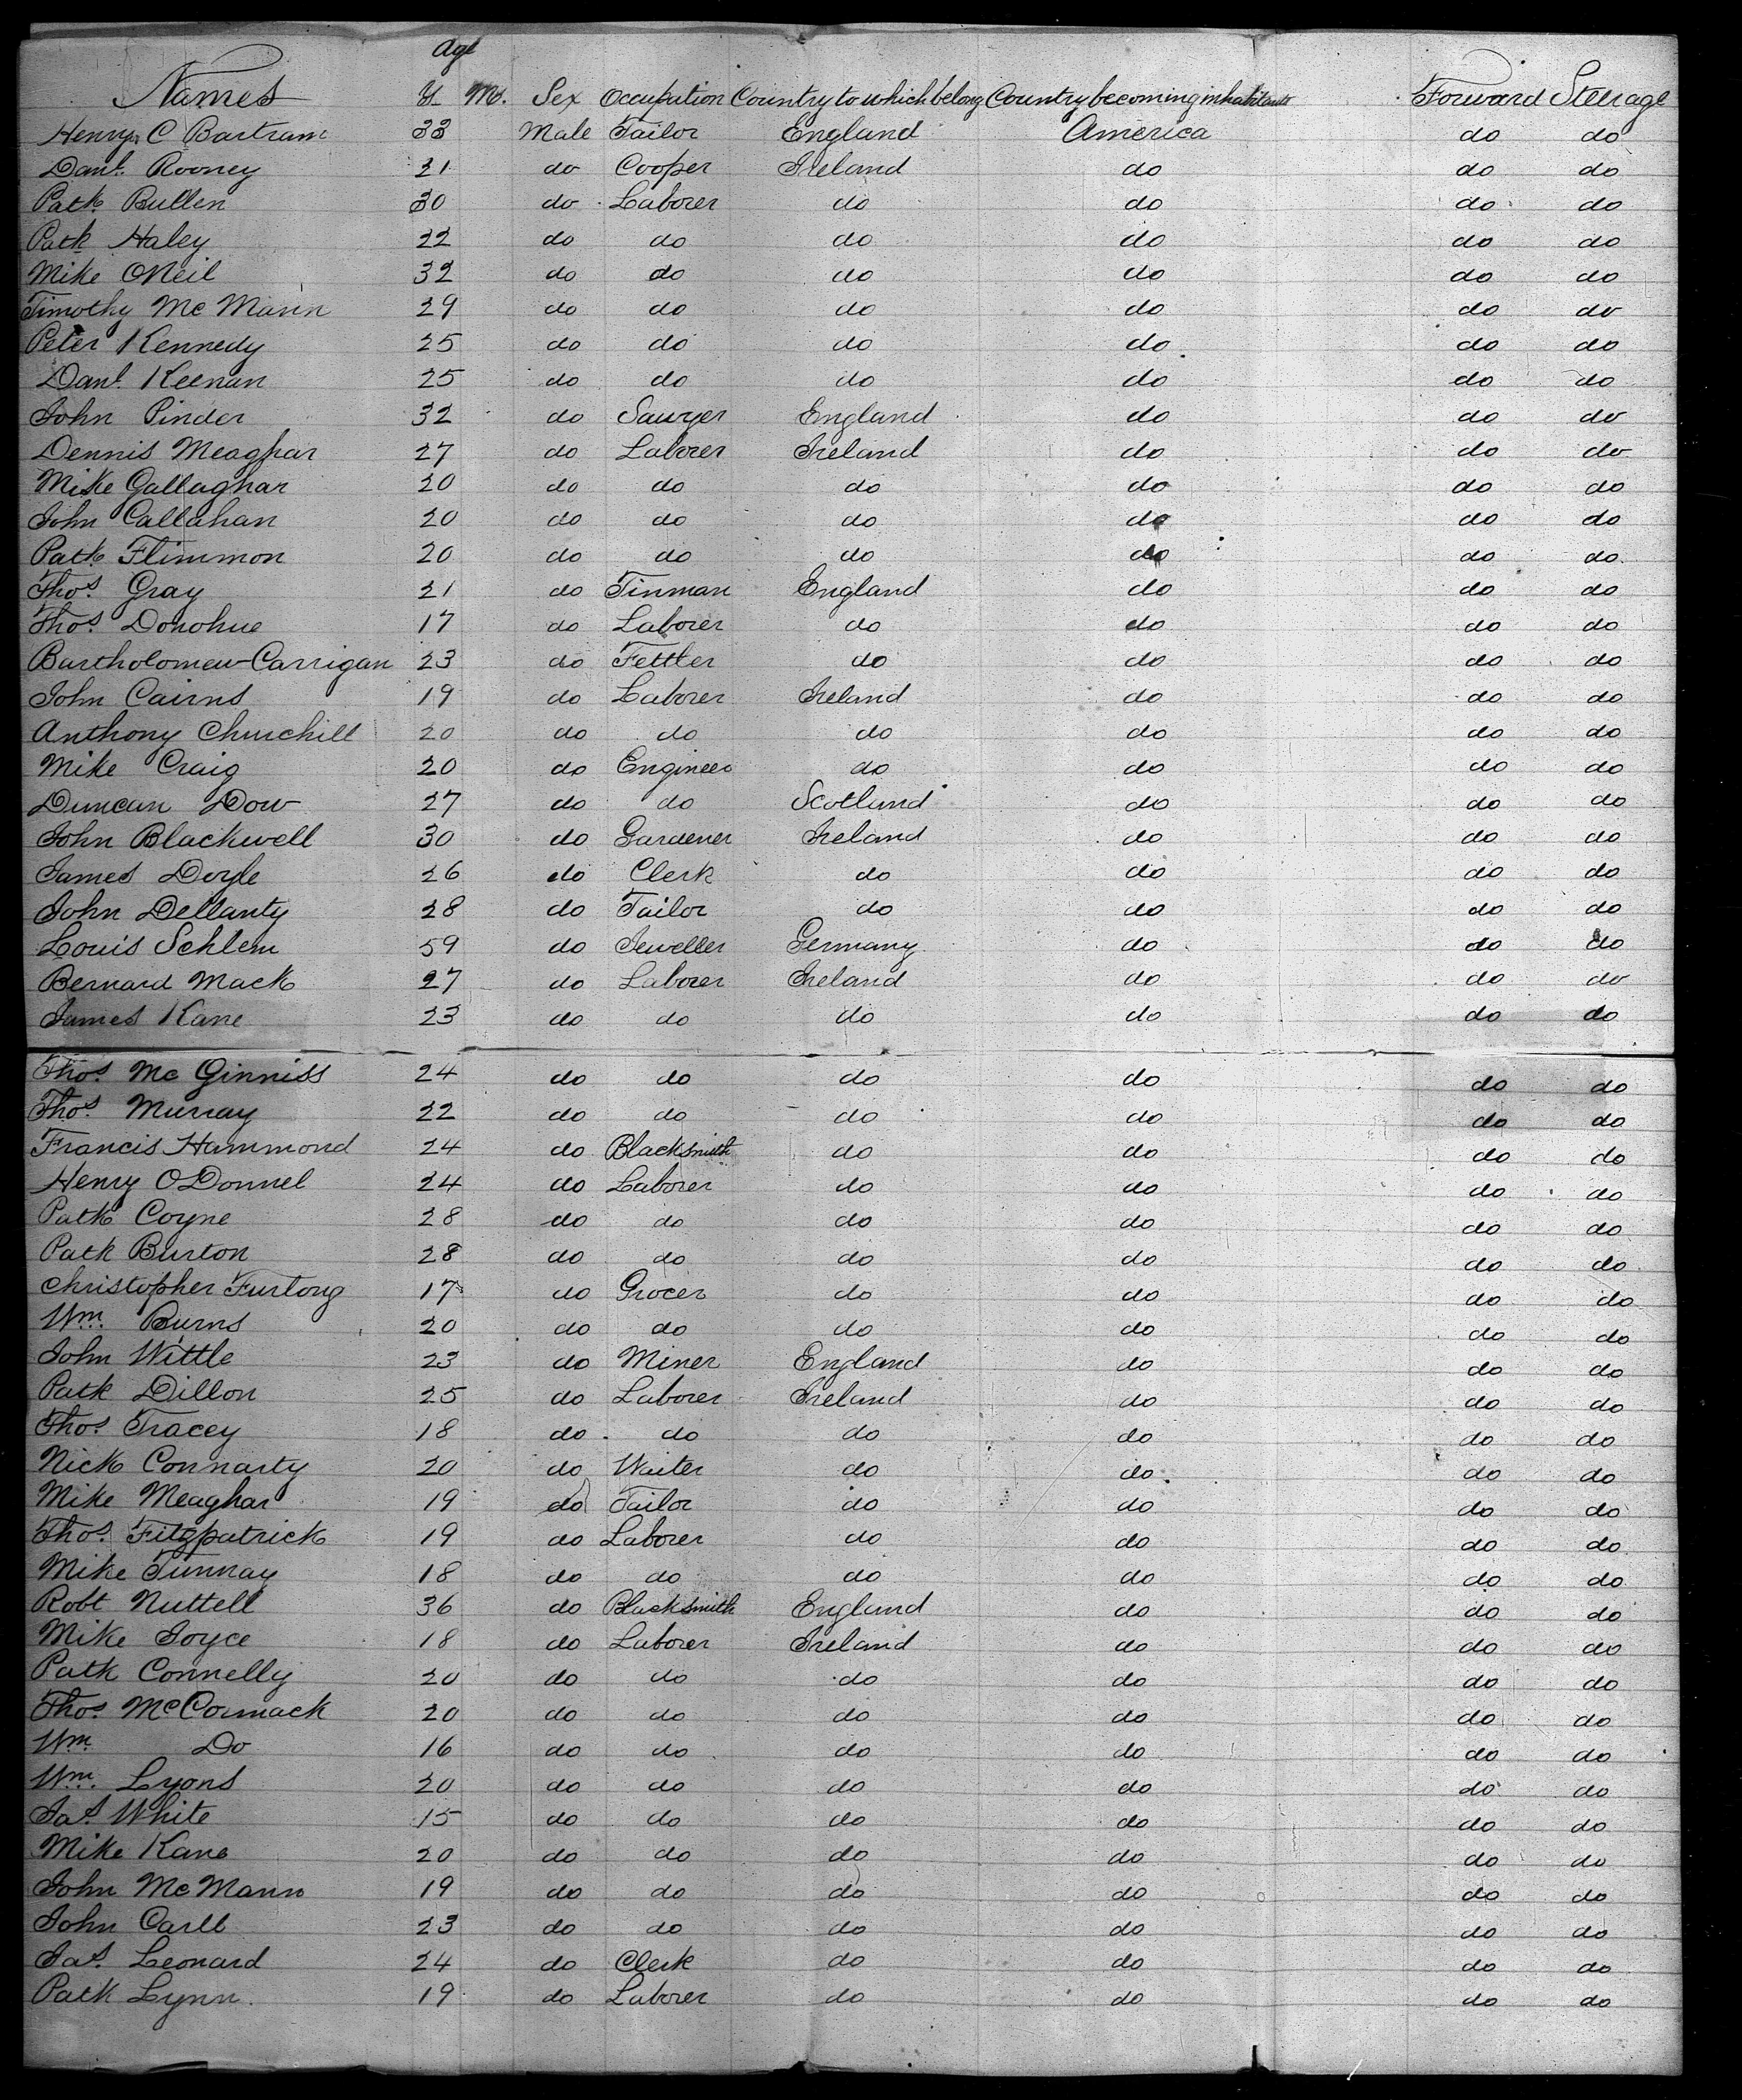 Age
Names Y. Ms. Sex Occupation Country to which belong Country becoming inhabitants Forward Steerage
Henry C Bartram 33 Male Tailor England America do do
Danl. Rooney 21 do Cooper Ireland do do do
Patk. Bullen 30 do Laborer do do do do
Patk Haley 22 do do do do do do
Mike ONeil 32 do do do do do do
Timothy Mc Mann 29 do do do do do do
Peter Kennedy 25 do do do do do do
Danl. Keenan 25 do do do do do do
John Pinder 32 do Sawyer England do do do
Dennis Meaghar 27 do Laborer Ireland do do do
Mike Gallaghar 20 do do do do do do
John Callahan 20 do do do do do do
Patk. Flimmon 20 do do do do do do
Thos. Gray 21 do Tinman England do do do
Thos. Donohue 17 do Laborer do do do do
Bartholomew Carrigan 23 do Fettler do do do do
John Cairns 19 do Laborer Ireland do do do
Anthony Churchill 20 do do do do do do
Mike Craig 20 do Engineer do do do do
Duncan Dow 27 do do Scotland do do do
John Blackwell 30 do Gardener Ireland do do do
James Doyle 26 do Clerk do do do do
John Dellanty 28 do Tailor do do do do
Louis Schlem 59 do Jeweller Germany do do do
Bernard Mack 27 do Laborer Ireland do do do
James Kane 23 do do do do do do
Thos. Mc Ginniss 24 do do do do do do
Thos. Murray 22 do do do do do do
Francis Hammond 24 do Blacksmith do do do do
Henry ODonnel 24 do Laborer do do do do
Patk Coyne 28 do do do do do do
Patk Burton 28 do do do do do do
Christopher Furlong 17 do Grocer do do do do
Wm. Burns 20 do do do do do do
John Wittle 23 do Miner England do do do
Patk Dillon 25 do Laborer Ireland do do do
Thos. Tracey 18 do do do do do do
Nick Connarty 20 do Waiter do do do do
Mike Meaghar 19 do Tailor do do do do
Thos. Fitzpatrick 19 do Laborer do do do do
Mike Tunnay 18 do do do do do do
Robt Nuttell 36 do Blacksmith England do do do
Mike Joyce 18 do Laborer Ireland do do do
Patk Connelly 20 do do do do do do
Thos. McCormack 20 do do do do do do
Wm. Do 16 do do do do do do
Wm. Lyons 20 do do do do do do
Jas. White 15 do do do do do do
Mike Kane 20 do do do do do do
John Mc Mann 19 do do do do do do
John Carll 23 do do do do do do
Jas. Leonard 24 do Clerk do do do do
Patk Lynn. 19 do Laborer do do do do